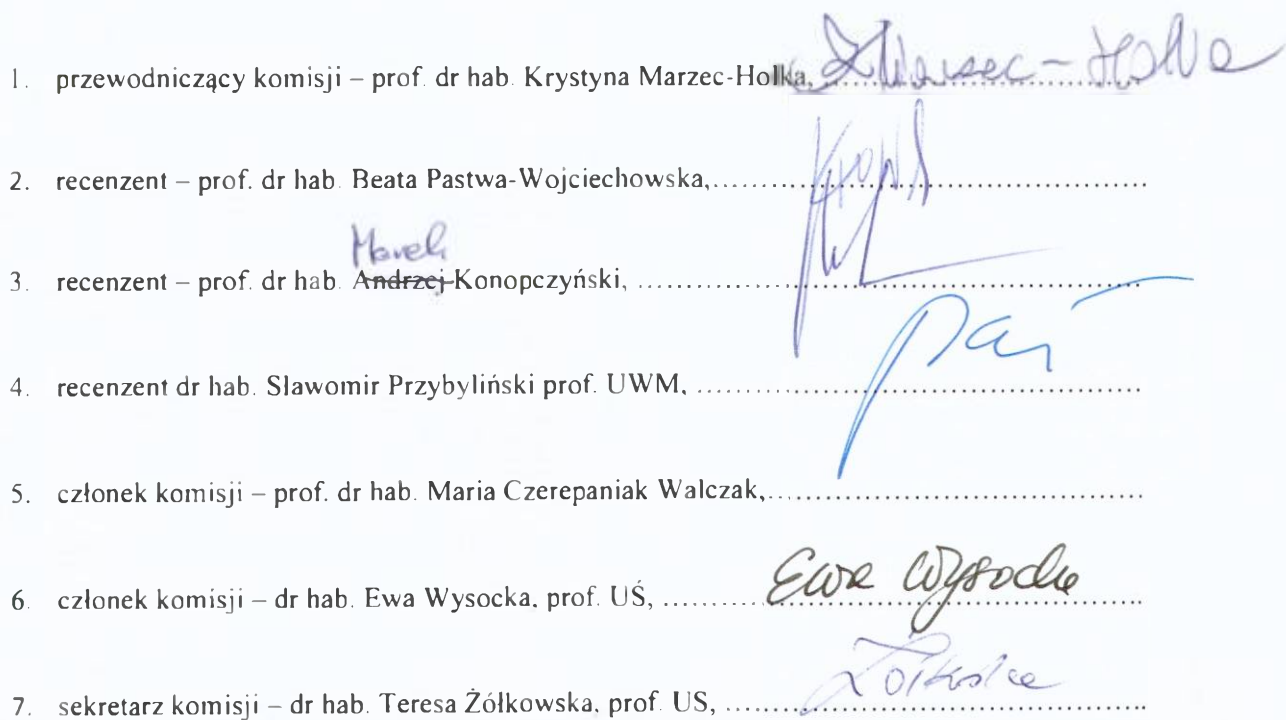 1. przewodniczący komisji – prof. dr hab. Krystyna Marzec-Hołka, ........ Marzec-Hołka
2. recenzent – prof. dr hab. Beata Pastwa-Wojciechowska, ........
Marek
3. recenzent – prof. dr hab. Andrzej Konopczyński, ........
4. recenzent dr hab. Sławomir Przybyliński prof. UWM, ........
5. członek komisji – prof. dr hab. Maria Czerepaniak Walczak, ........
6. członek komisji – dr hab. Ewa Wysocka, prof. UŚ, ........ Ewa Wysocka
7. sekretarz komisji – dr hab. Teresa Żółkowska, prof. US, ........ Żółkowska